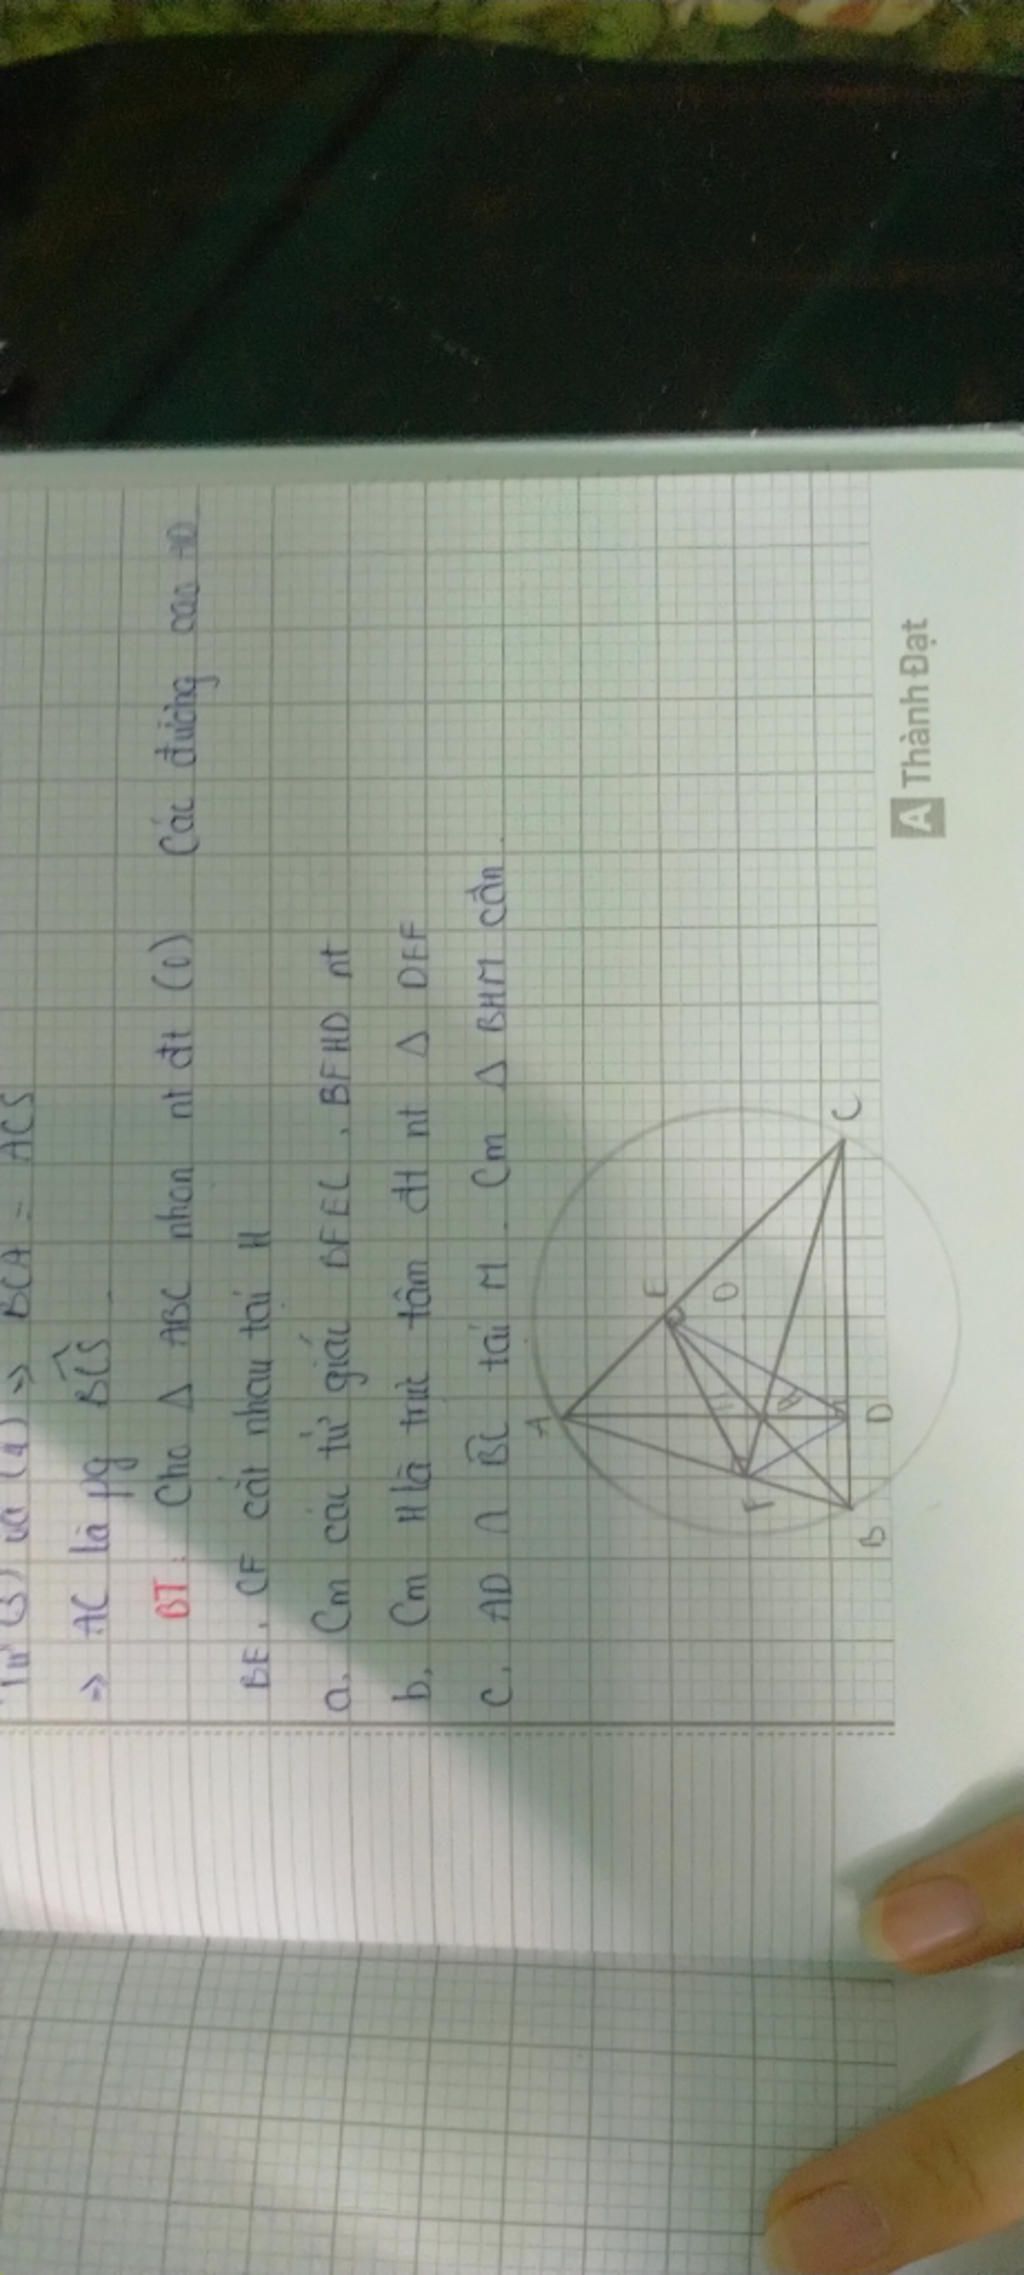 Từ (3) và (4) => BCA = ACS
=> AC là pg BCS
BT: Cho Δ ABC nhọn nt đt (O) Các đường cao AD
BE, CF cắt nhau tại H
a, Cm các tứ giác BFEC, BFHD nt
b, Cm H là trực tâm đt nt Δ DEF
C, AD ∩ BC tại M. Cm Δ BHM cân.
A
E
O
F
H
B
D
C
A Thành Đạt